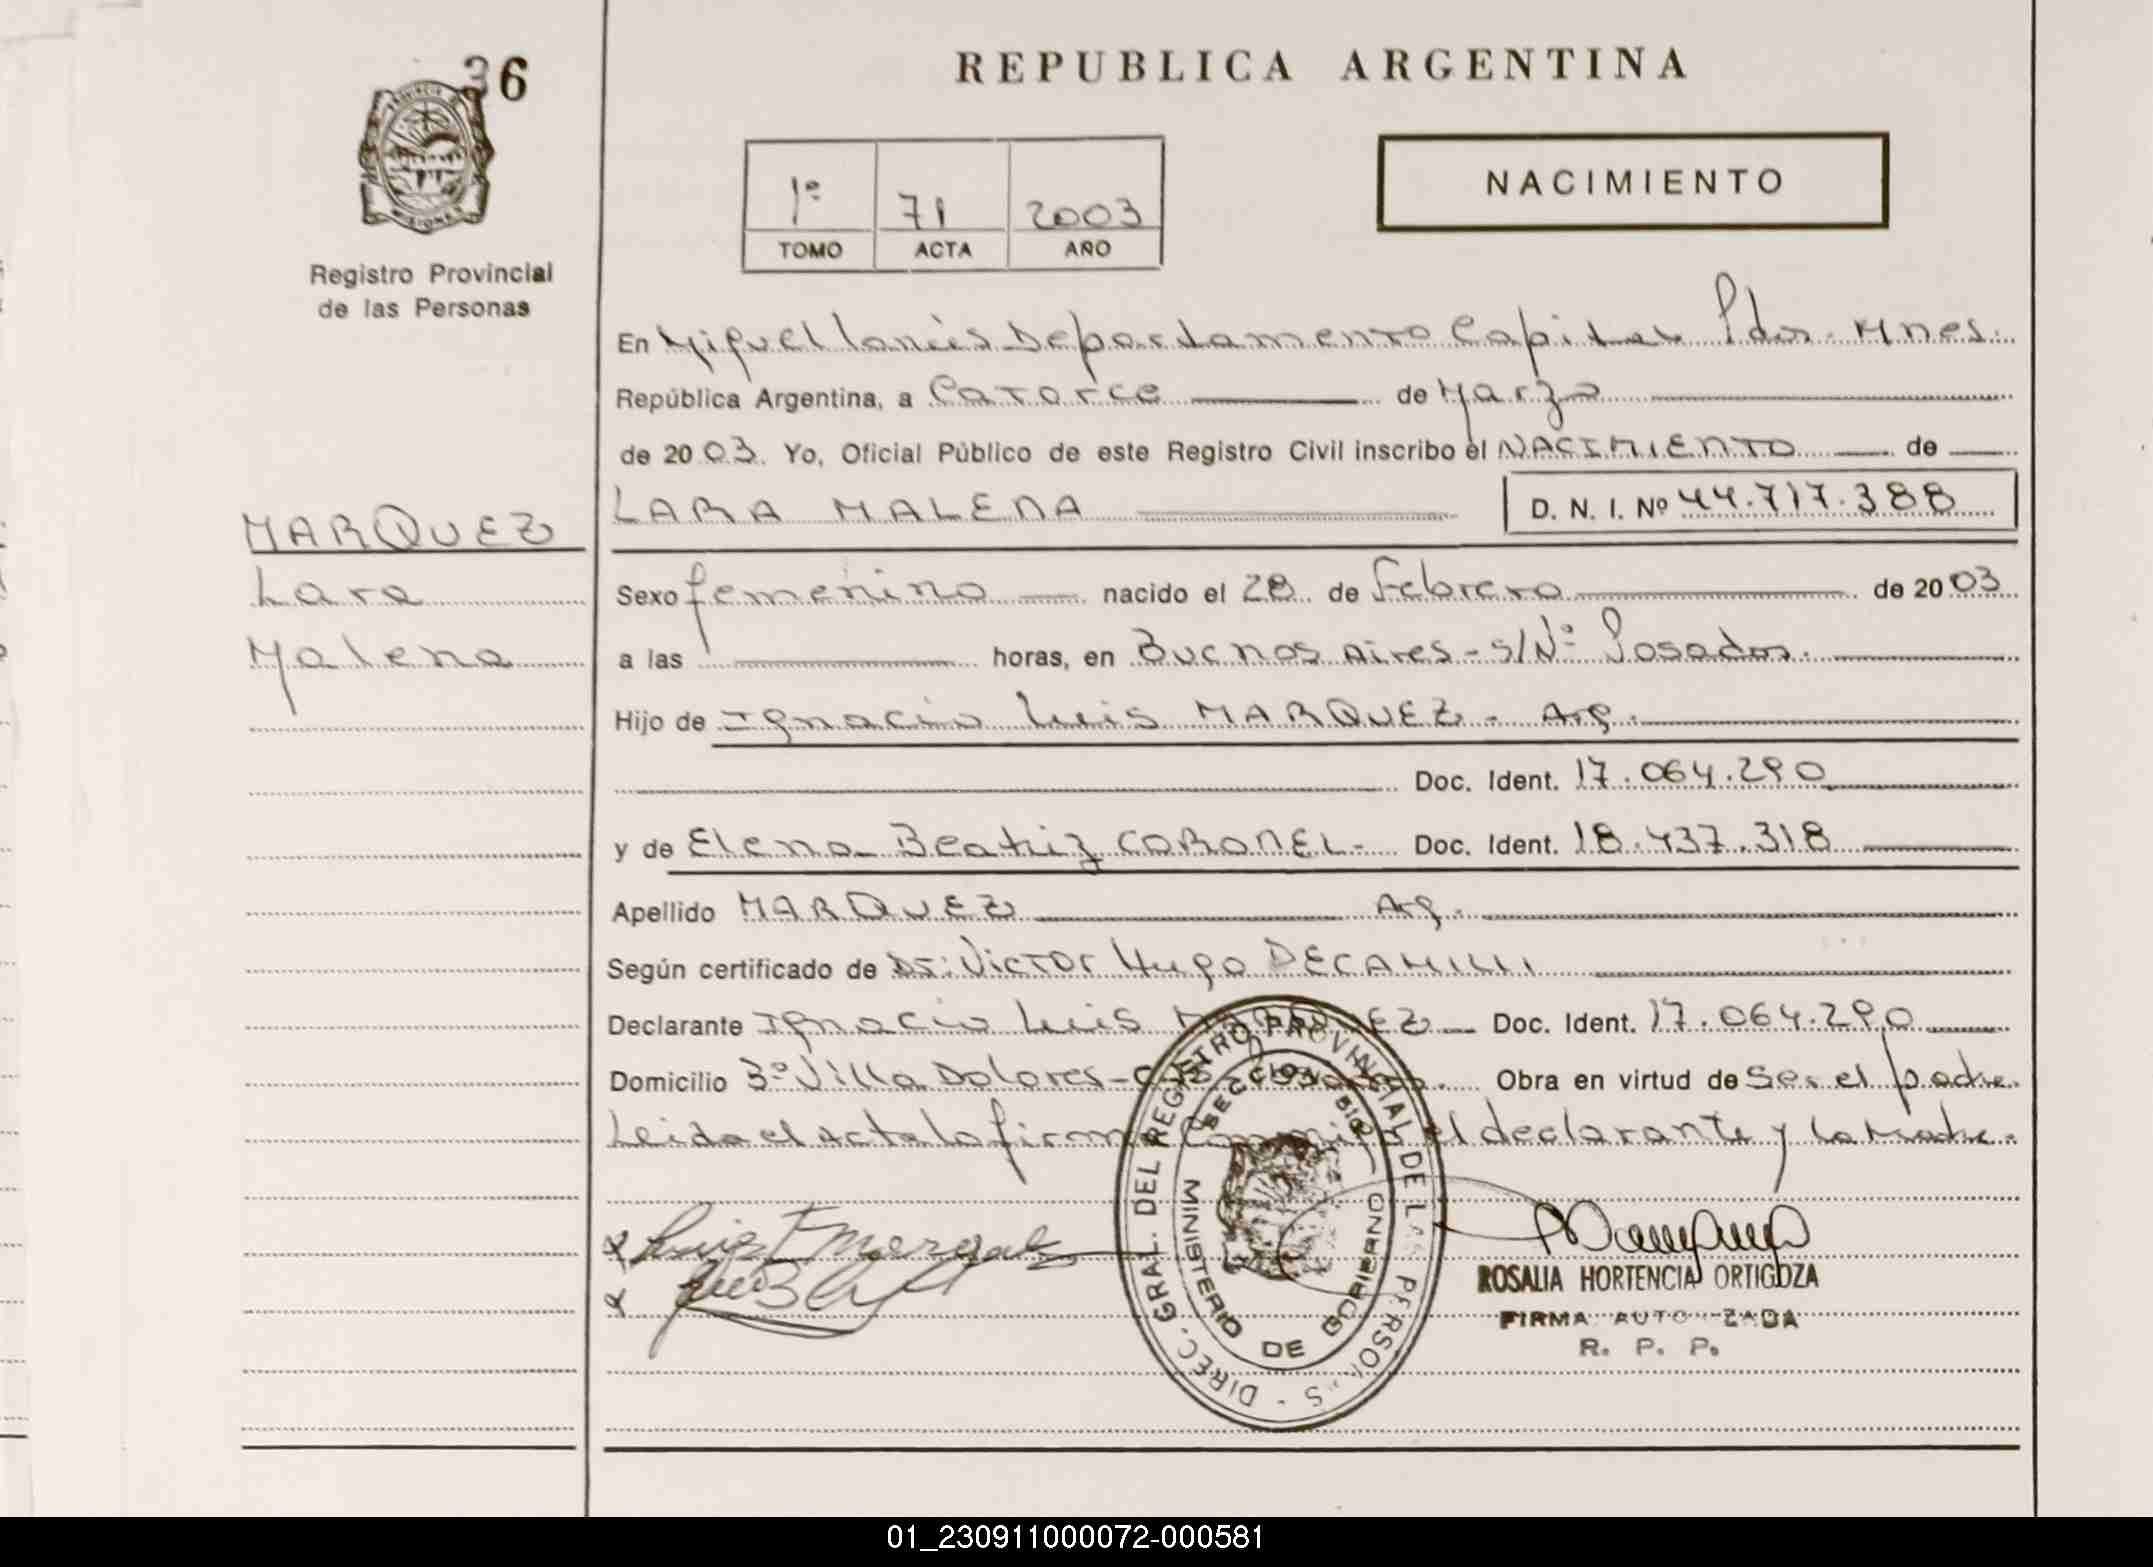 36
PROVINCIA DE
MISIONES
Registro Provincial
de las Personas
REPUBLICA ARGENTINA
1º 71 2003
TOMO ACTA AÑO
NACIMIENTO
En Miguel Lanús Departamento Capital Pdas. Mnes.
República Argentina, a Catorce de Marzo
de 2003. Yo, Oficial Público de este Registro Civil inscribo el NACIMIENTO de
MARQUEZ
Lara
Malena
LARA MALENA D. N. I. Nº 44.717.388
Sexo femenino nacido el 28 de Febrero de 2003
a las horas, en Buenos Aires - S/Nº Posadas.
Hijo de Ignacio Luis MARQUEZ - Arg.
Doc. Ident. 17.064.290
y de Elena Beatriz CORONEL - Doc. Ident. 18.437.318
Apellido MARQUEZ Arg.
Según certificado de Dr: Victor Hugo DECAMILLI
Declarante Ignacio Luis MARQUEZ Doc. Ident. 17.064.290
Domicilio 3º Villa Dolores - Obra en virtud de Ser el padre.
Leida el Acta la firman Conmigo el declarante y la Madre.
DIREC. GRAL. DEL REGISTRO PROVINCIAL DE LAS PERSONAS
SECCION
MINISTERIO DE GOBIERNO
ROSALIA HORTENCIA ORTIGOZA
FIRMA AUTORIZADA
R. P. P.
01_230911000072-000581